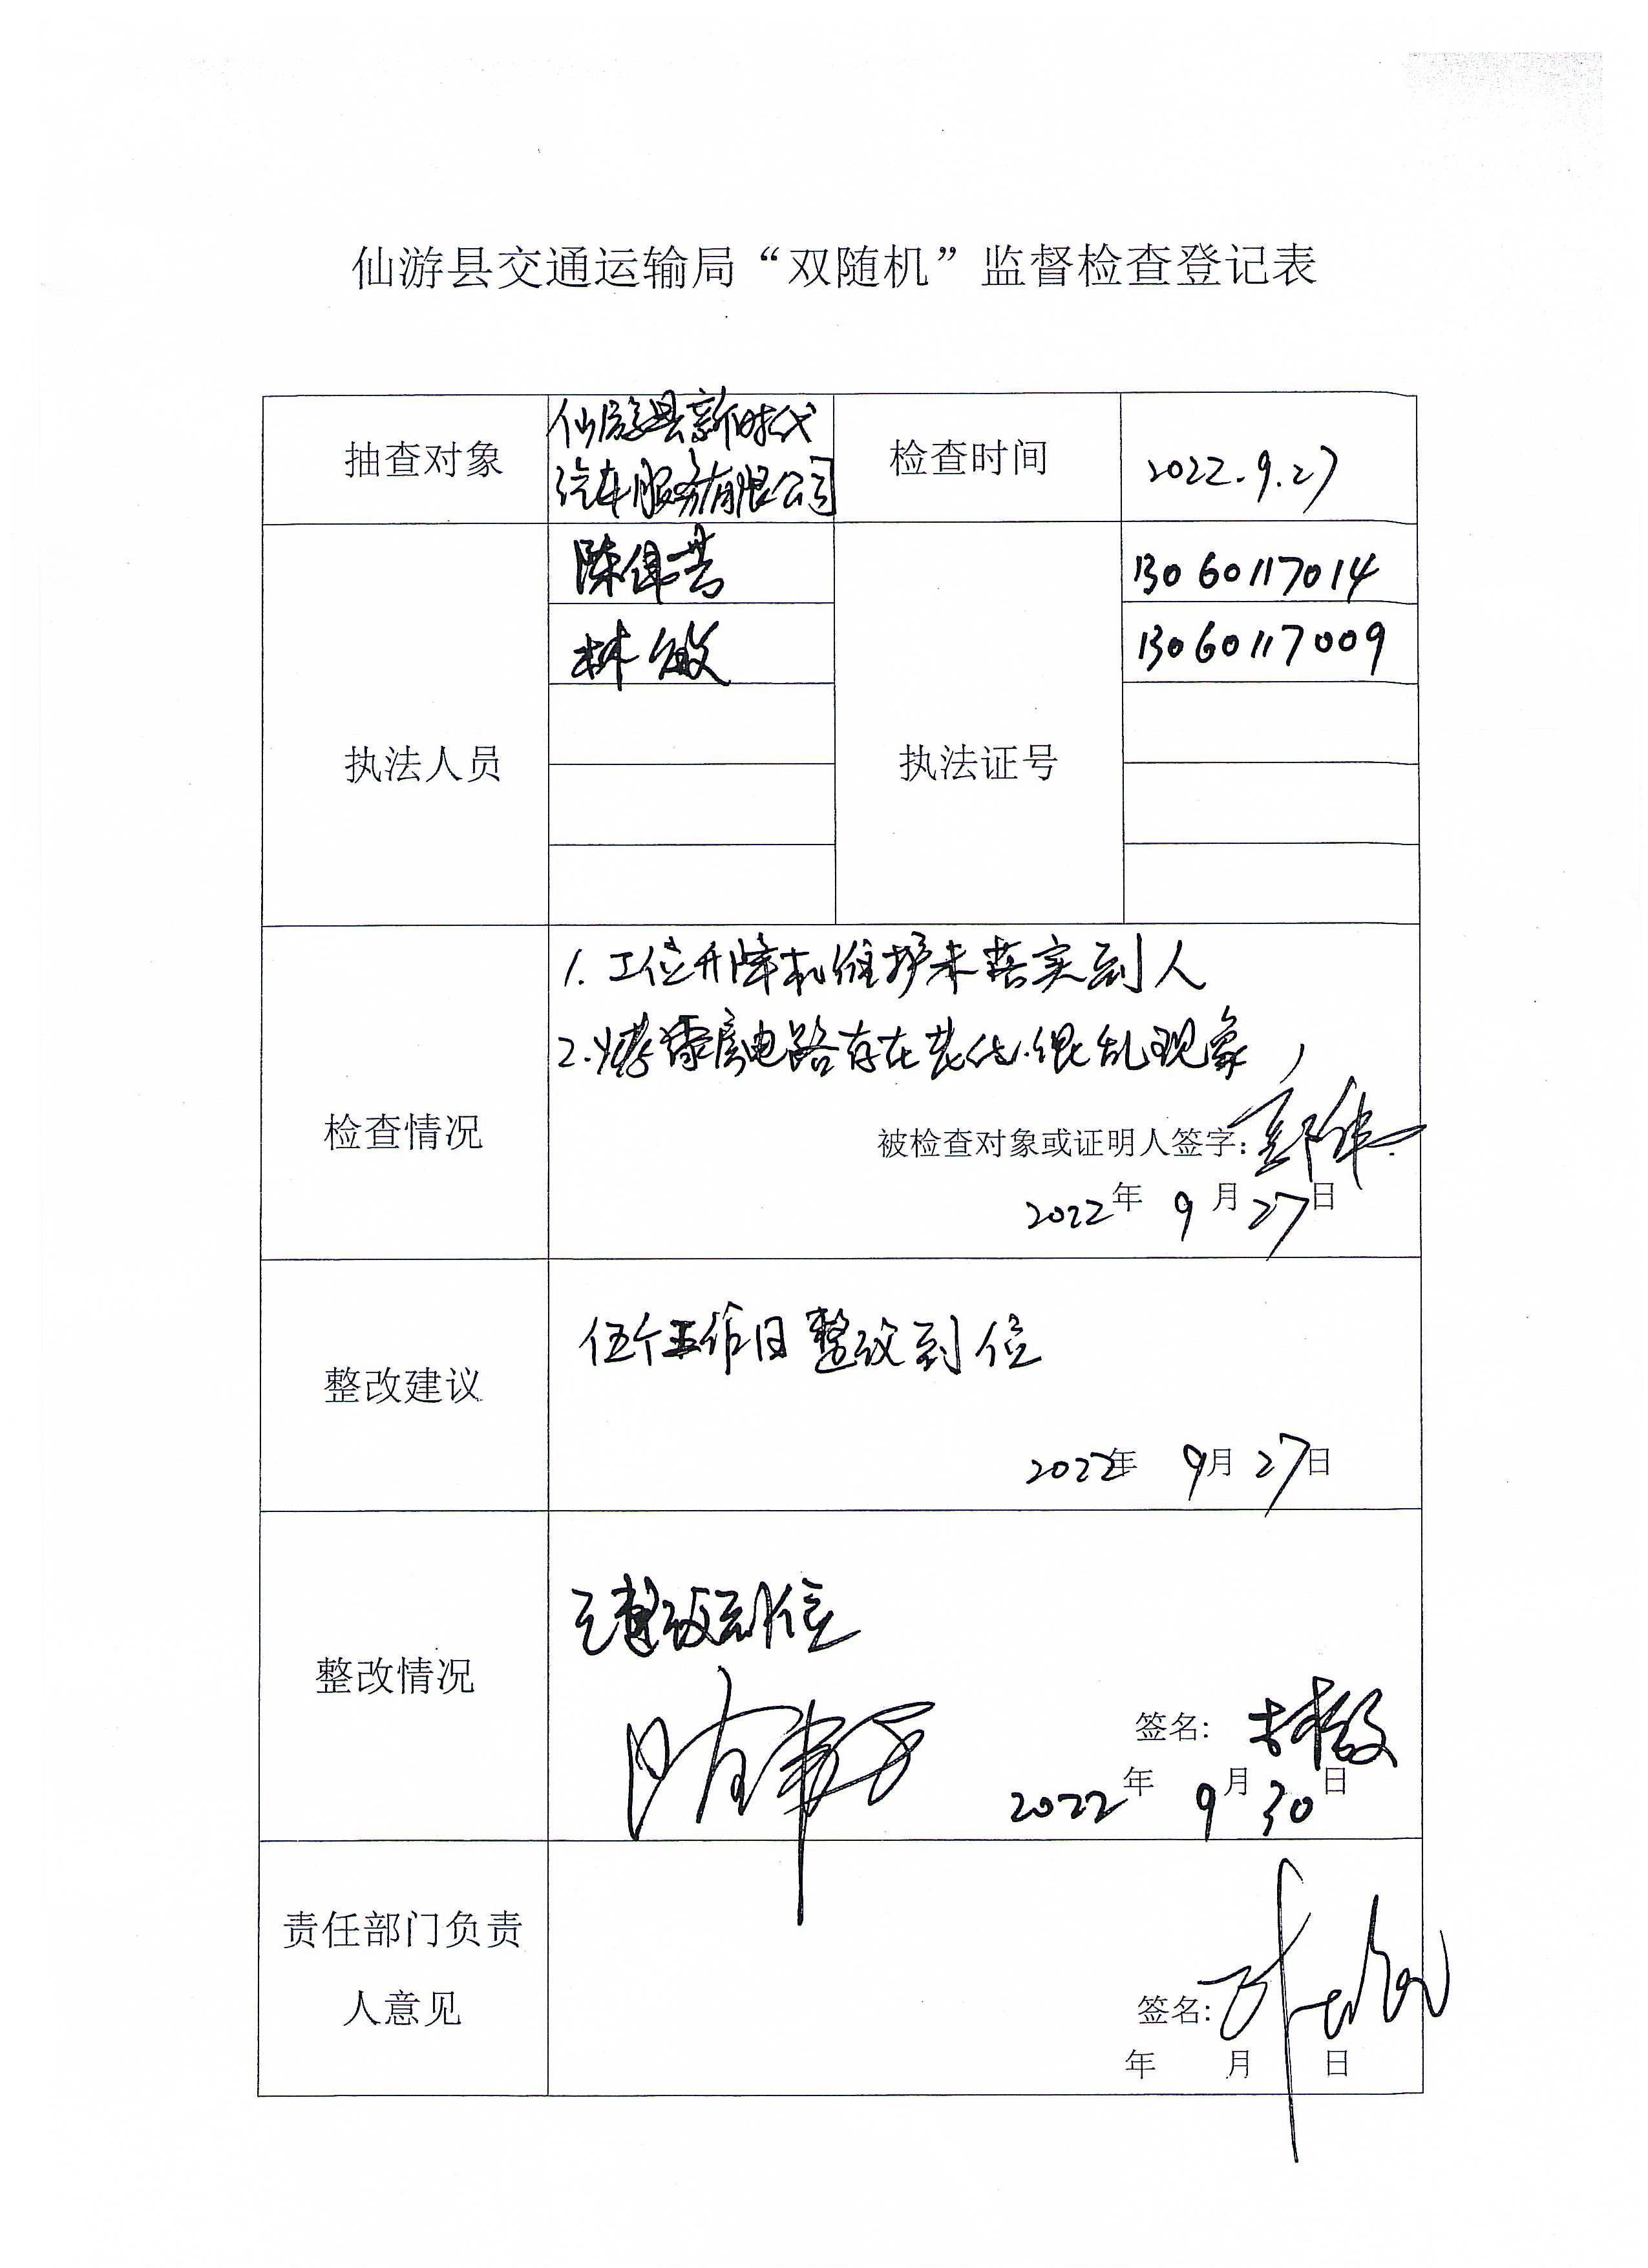 仙游县交通运输局“双随机”监督检查登记表
抽查对象
仙游县新时代
汽车服务有限公司
检查时间
2022.9.27
执法人员
陈
林敏
执法证号
13060117014
13060117009
检查情况
1. 工位升降机维护未落实到人
2. 烤漆房电路存在老化.混乱现象
被检查对象或证明人签字:
2022年 9月27日
整改建议
伍个工作日整改到位
2022年 9月27日
整改情况
已整改到位
签名: 林敏
2022年 9月30日
责任部门负责
人意见
签名:
年 月 日